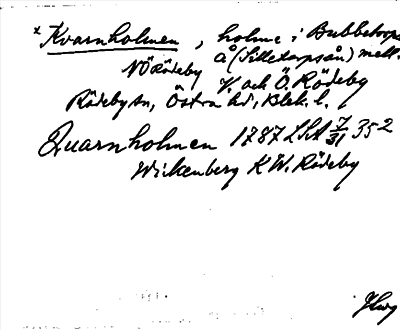 x Kvarnholmen, holme i Bubbetorps
å (Silletorpsån) mell.
NÖ Rödeby V. och Ö. Rödeby
Rödeby sn, Östra hd, Blek. l.
Quarnholmen 1787 LSA 7/31 352
Wickenberg KW. Rödeby